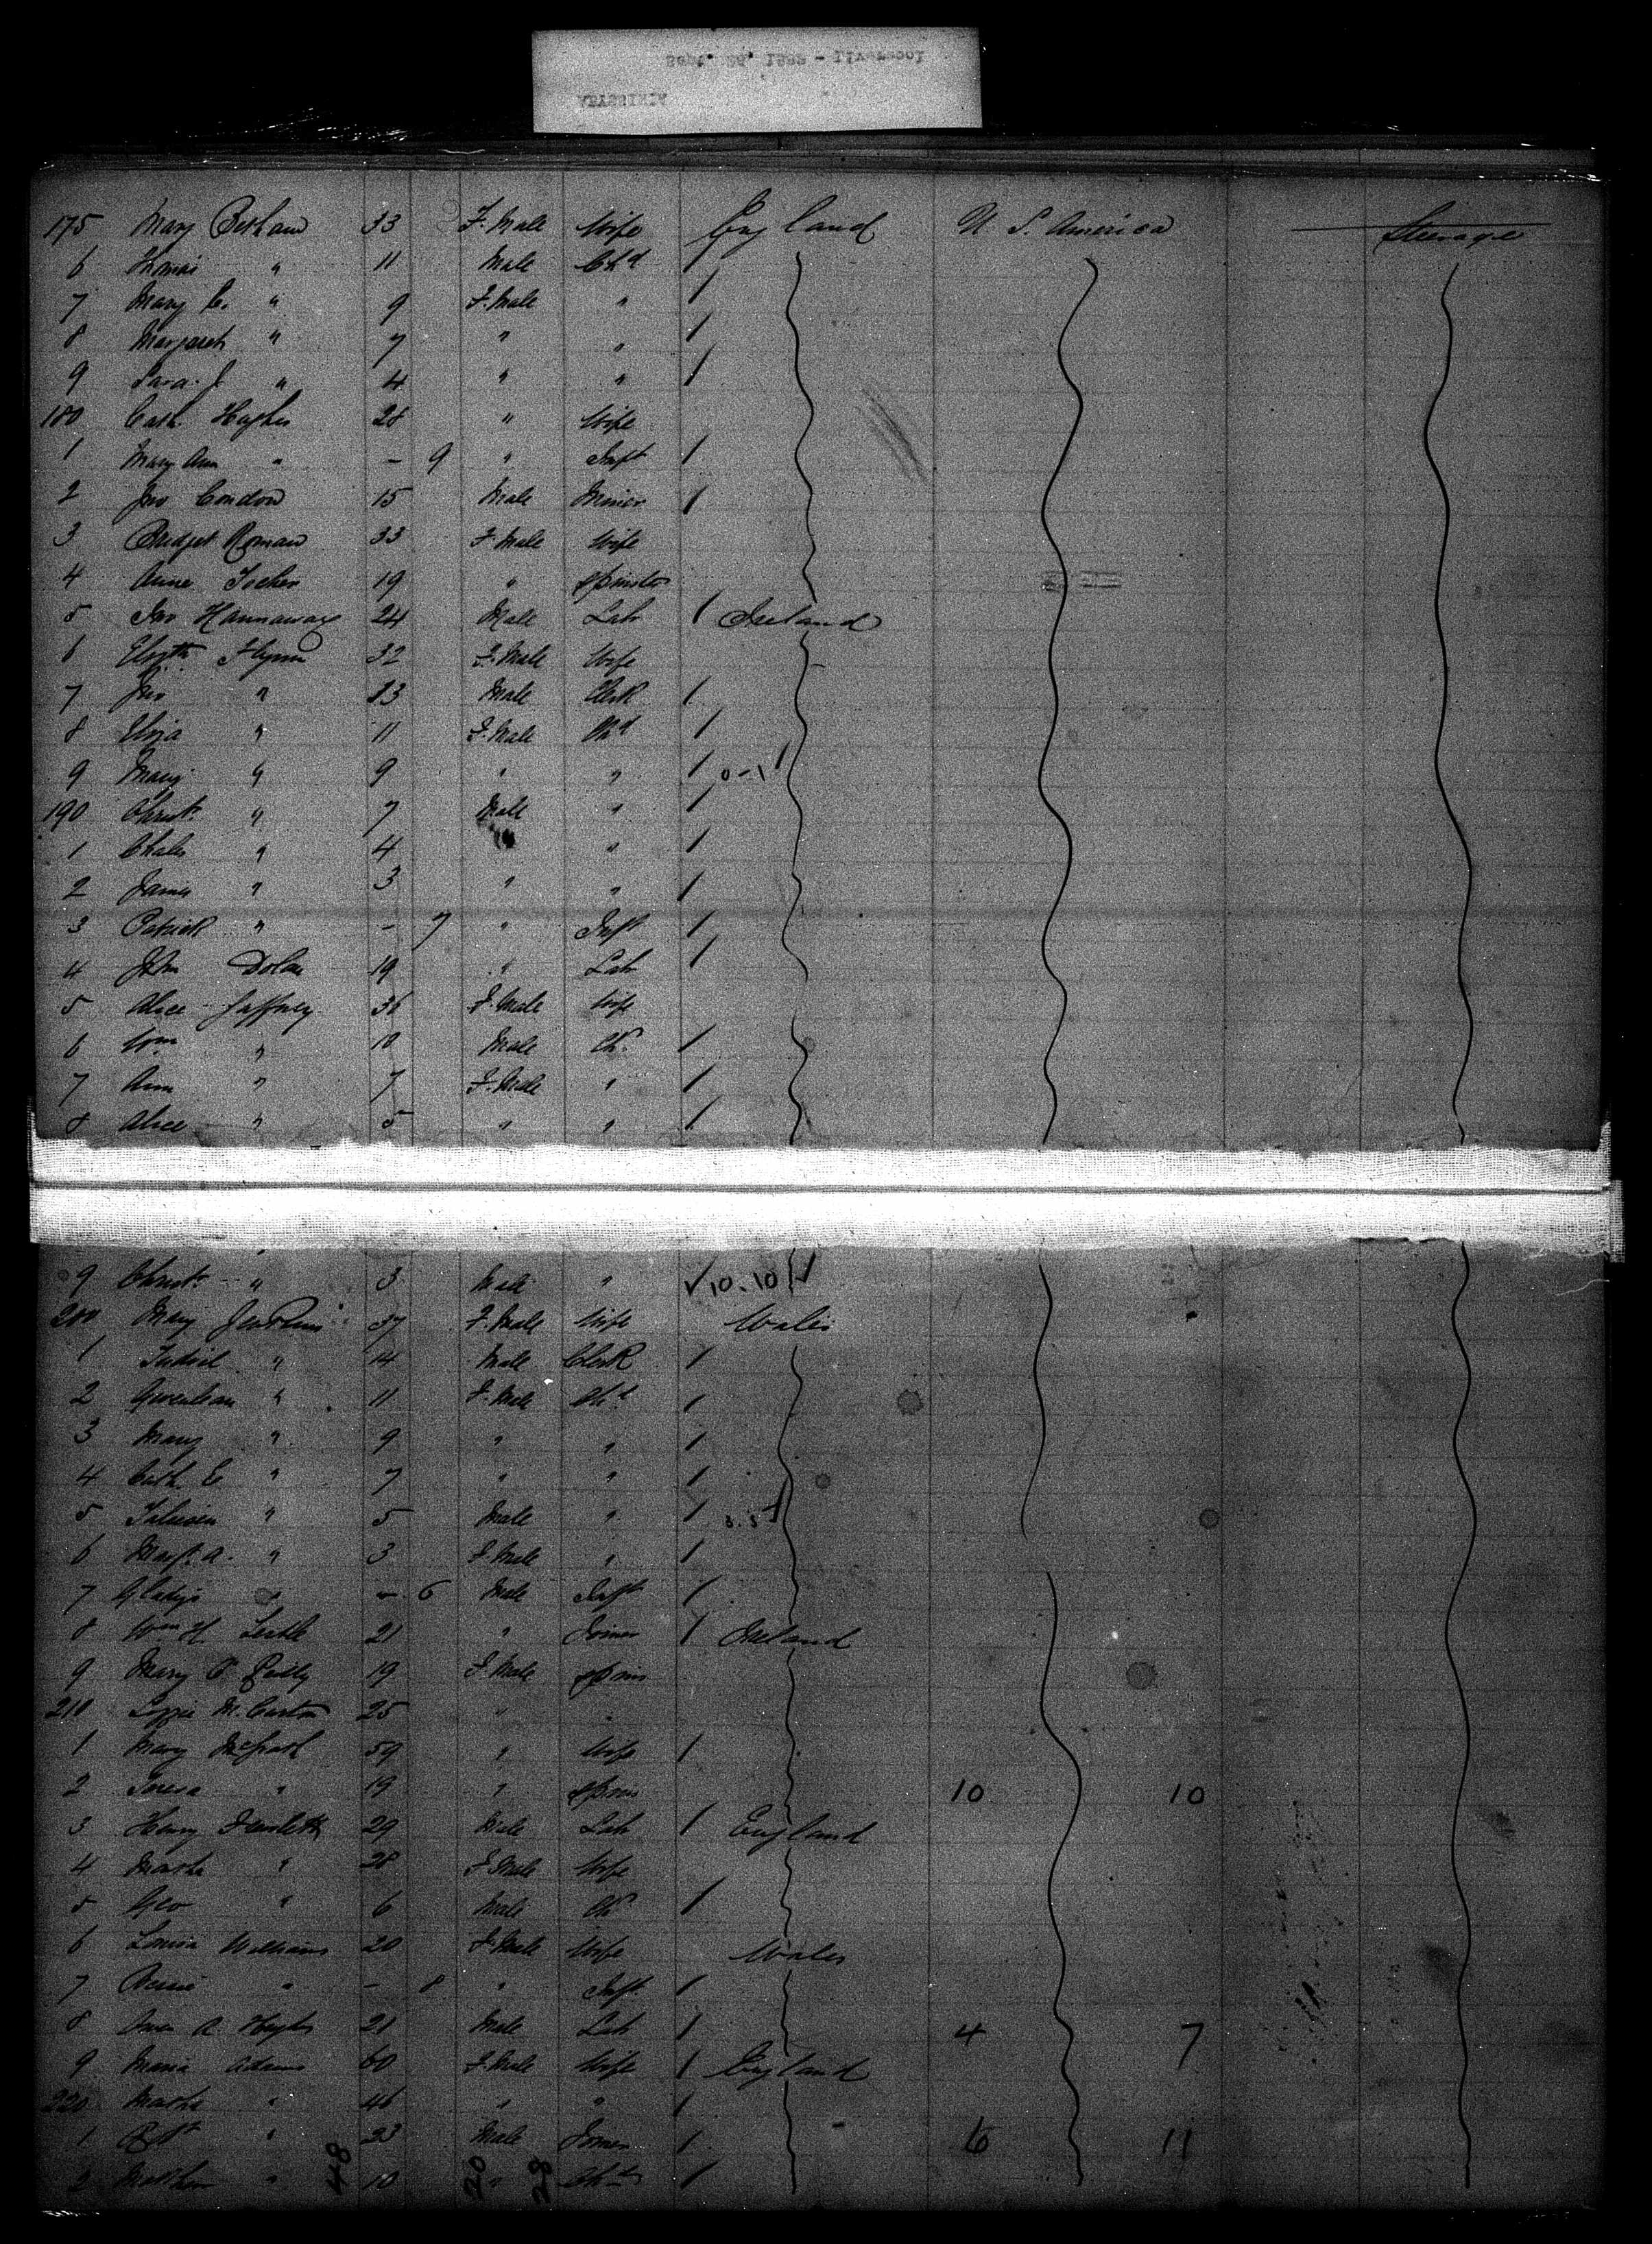 Sept. 26, 1882 - Liverpool
ABYSSINIA
175 Mary 33 F. Male Wife England U S. America Steerage
6 Thomas " 11 Male Chd
7 Mary C. " 9 F. Male "
8 Margaret " 7 " "
9 Sara. J " 4 " "
180 Cath. Hughes 28 " Wife
1 Mary Ann " - 9 " Inft
2 Jno Condon 15 Male Miner
3 Bridget Ronan 33 F. Male Wife
4 Anne 19 " Spinster
5 Jno Hannaway 24 Male Lab Ireland
6 Elizth Flynn 32 F. Male Wife
7 Jno " 13 Male Clerk
8 Eliza " 11 F. Male Chd
9 Mary " 9 " " 0-1
190 Christr " 7 Male "
1 Chales " 4 "
2 James " 3 " "
3 Patrick " - 7 " Inft
4 John Dolan 19 " Lab
5 Alice Gaffney 36 F. Male Wife
6 Wm " 10 Male Ch.
7 Ann " 7 F. Male "
8 Alice " 5 " "
9 Christr " 3 Male " 10.10
200 Mary Jenkins 37 F. Male Wife Wales
1 " 14 Male Clerk
2 Gwenlean " 11 F. Male Chd
3 Mary " 9 " "
4 Cath. E " 7 " "
5 Taliesen " 5 Male " 3.5
6 Margt. A. " 3 F. Male "
7 Gladys " - 6 Male Inft
8 Wm H 21 " Joiner Ireland
9 Mary Reilly 19 F. Male Spins
210 Lizzie 25 "
1 Mary McGrath 59 " Wife
2 Teresa " 19 " Spins 10 10
3 Henry 29 Male Lab England
4 Martha " 28 F. Male Wife
5 Geo " 6 Male Ch
6 Louisa Williams 20 F. Male Wife Wales
7 Bessie " - 8 " Inft
8 Owen A. Hughes 21 Male Lab 4 7
9 Maria Adams 60 F. Male Wife England
220 Martha " 46 " "
1 Robt " 23 Male Joiner 6 11
2 Matthew " 10 " Chd
48 20 28